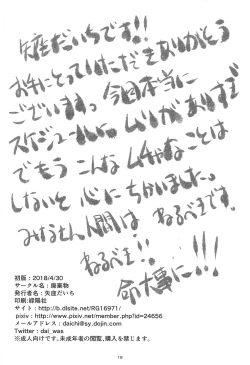 矢座だいちです!!
お手にとっていただきありがとう
ございますっ 今回本当に
スケジュールに ムリがありすぎ
でもう こんな ムチャなことは
しないと 心に ちかいました。
みなさん 人間は ねるべきです。
ねるべき!!
命大事に!!!
初版:2018/4/30
サークル名:廃棄物
発行者名:矢座だいち
印刷:緑陽社
サイト:http://b.dlsite.net/RG16971/
pixiv:http://www.pixiv.net/member.php?id=24656
メールアドレス:daichi@sy.dojin.com
Twitter:dai_was
※成人向けです。未成年者の閲覧、購入を禁じます。